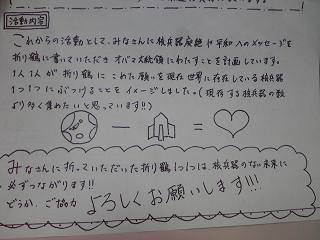 活動内容
これからの活動として、みなさんに核兵器廃絶や平和へのメッセージを
折り鶴に書いていただき オバマ大統領にわたすことを計画しています。
1人1人が 折り鶴に こめた願いを現在 世界に存在している核兵器
1つ1つに ぶつけることを イメージしました。(現存する核兵器の数
より多く集めたいと思っています!!)
みなさんに折っていただいた折り鶴1つ1つは、核兵器のない未来に
必ずつながります!!
どうか、ご協力 よろしくお願いします!!!